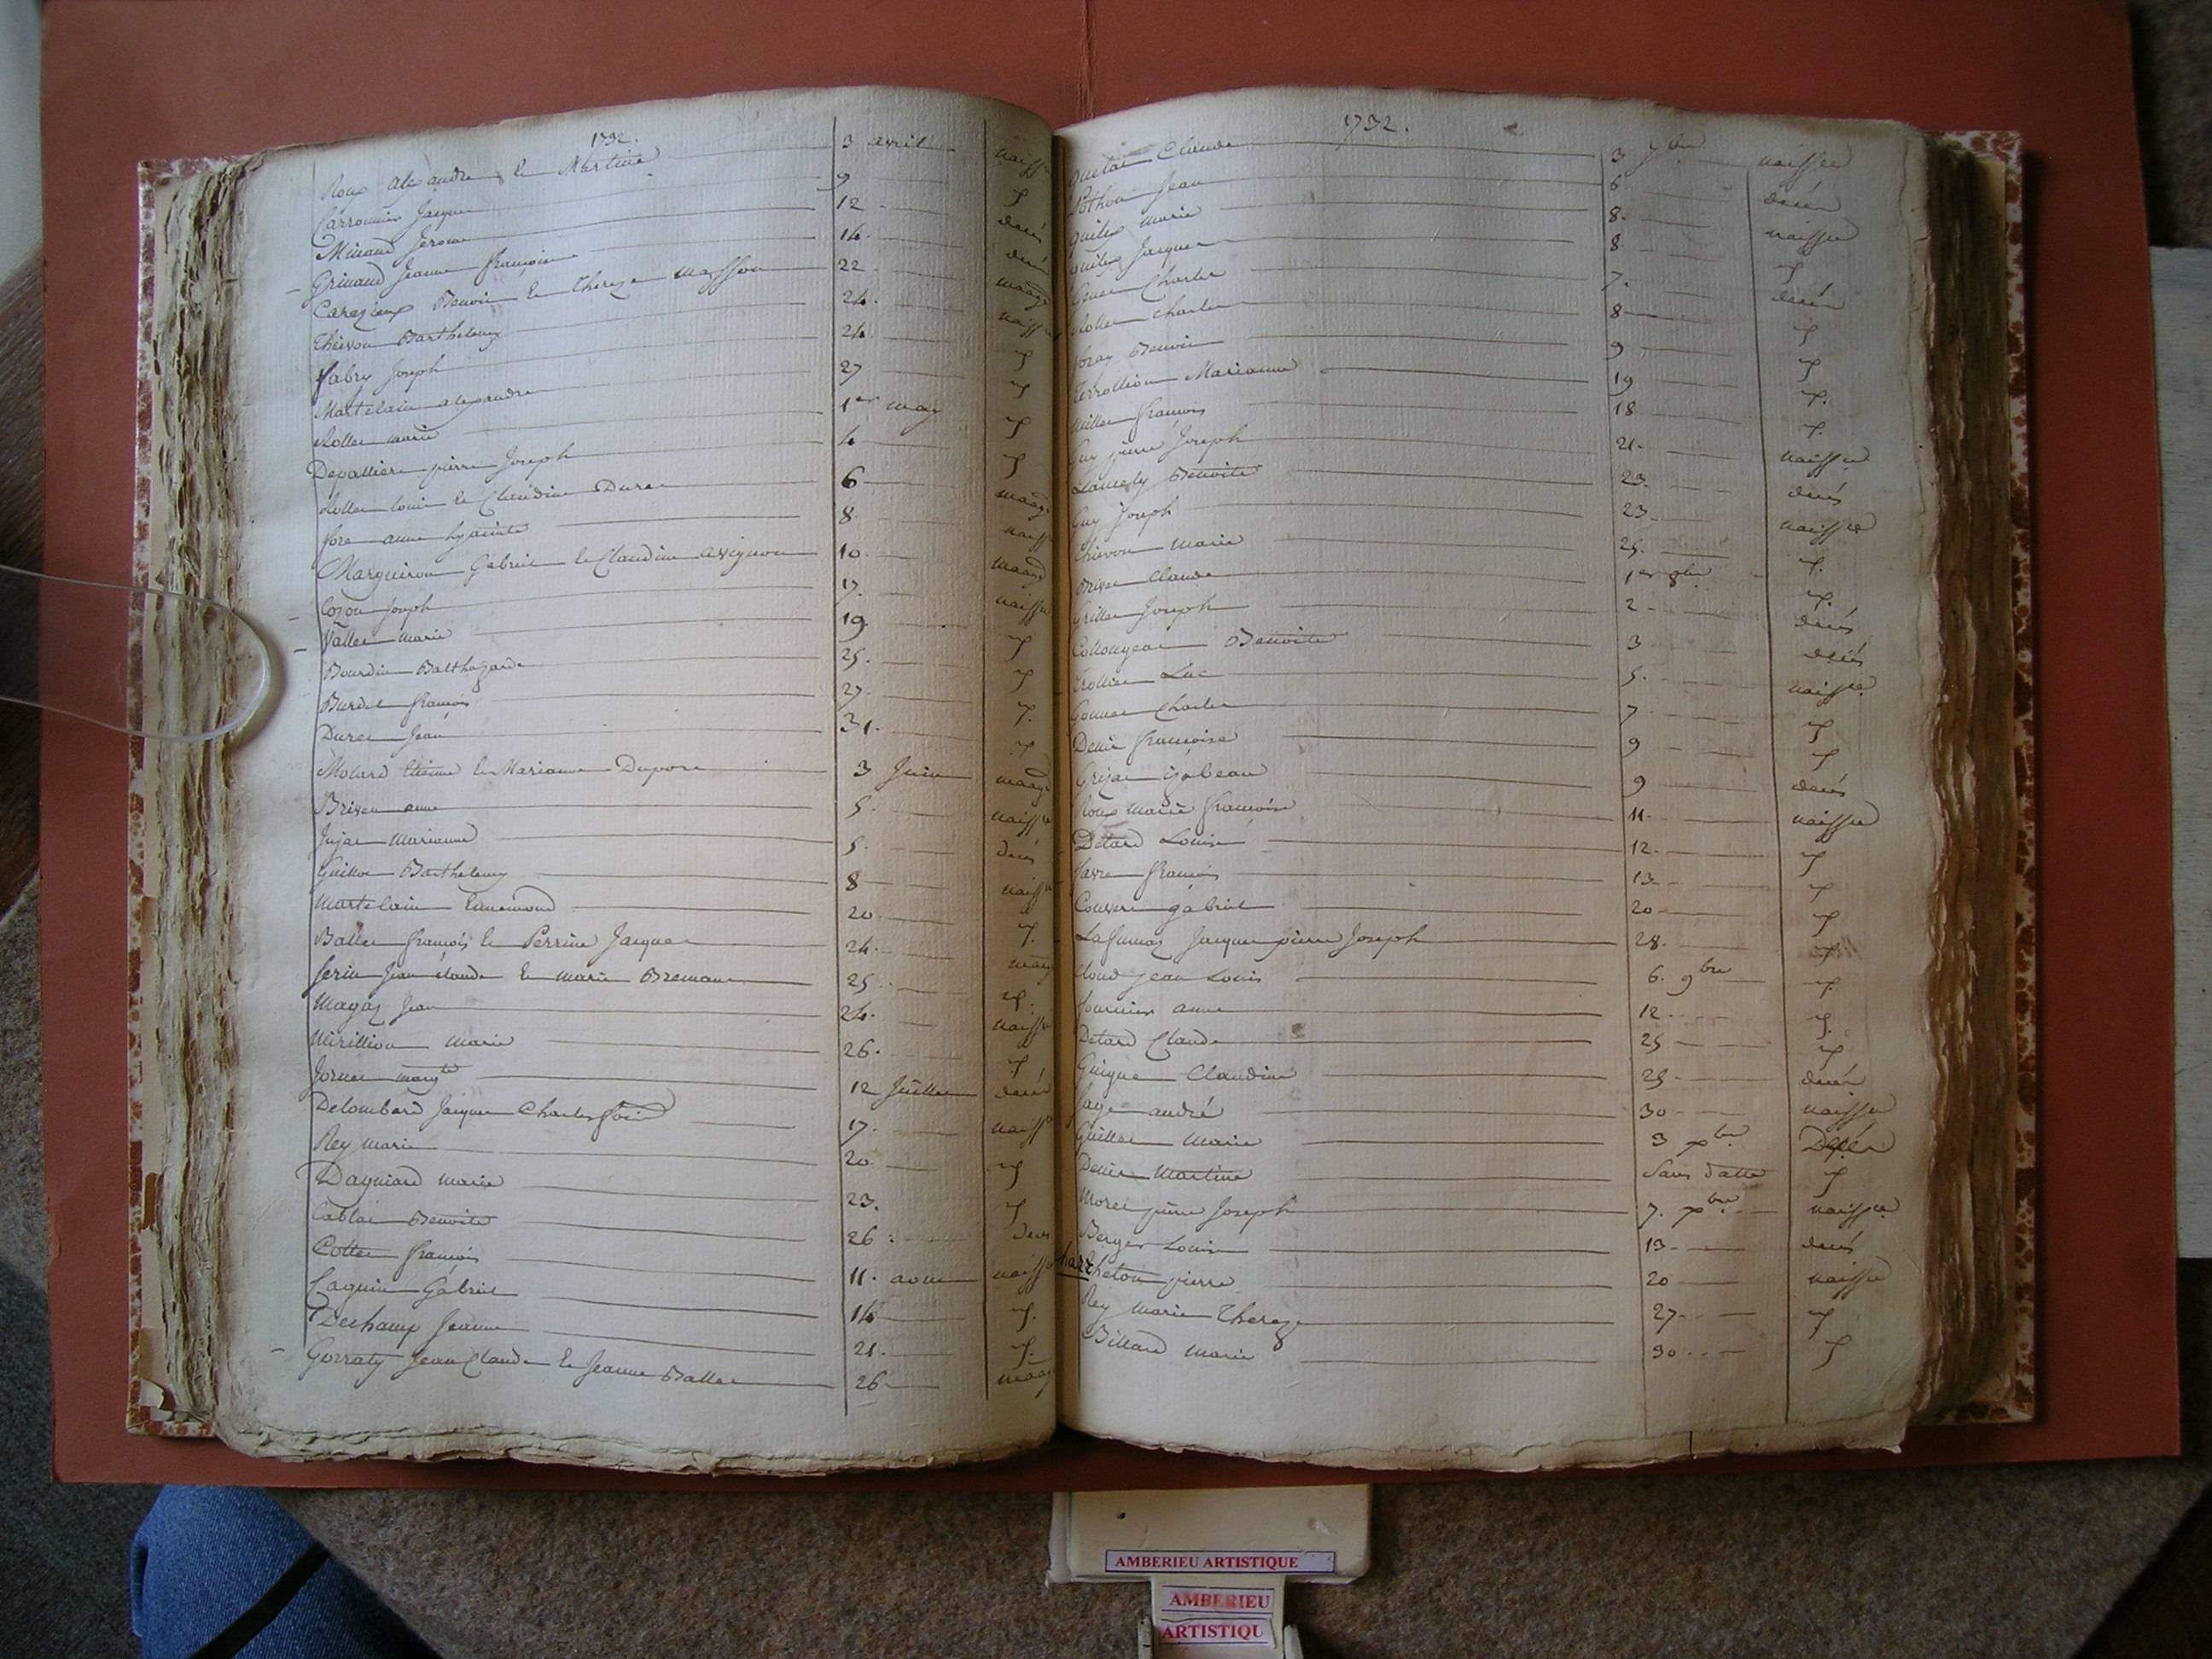 1732.
Roux alexandre et Martine 3 avril naissce
Carronnier Jacques 9 id
Minand Jerome 12 décés
Grinand Jeanne françoise 14. décés
Carazieux Benoit et Thereze Masson 22 maage
Thevon Barthelemy 24. naissce
fabry Joseph 24. id
Martelain alexandre 27 id
Rollet marie 1er may id
Depalliere pierre Joseph 4 id
Rollet Louis et Claudine Duret 6 maage
fore anne hyacinte 8 naissce
Marguiron Gabriel et Claudine avignon 10. maage
Cozon Joseph 17. naissce
Vallet marie 19 id
Bourdin Balthazarde 25. id
Burdet françois 27. id
Duret Jean 31. id
Molard Etienne et Marianne Dupont 3 Juin maage
Brivet anne 5. naissce
Jujat Marianne 5. décés
Guillot Barthelemy 8 naissce
Martelain Ennemond 20. id
Ballet françois et Perrine Jacquet 24. maage
ferin Jean claude et marie Bremant 25. id
Magaz Jean 24. naissce
Mirillion Marie 26. id
Jornet margte 12 Juillet décés
Delombard Jacques Charles 17. naissce
Rey marie 20 id
Dagniard marie 23. id
Tablai Benoite 26. décés
Cottet françois 11. aout naissce
Caquin Gabriel 14 id
Dechamp Jeanne 21. id
Gorraty Jean Claude et Jeanne Ballet 26 maage
1732.
Claude 3 7bre naissce
Pothon Jean 6 décés
marie 8. naissce
Jacques 8 id
Charles 7. décés
Rollet charles 8 id
Benoit 9 id
Terrollion Marianne 19 id
Millet françois 18 id
Guy pierre Joseph 21. naissce
Benoite 23. décés
Guy Joseph 23 naissce
Thievon marie 25. id
Brivet Claude 1er 8bre id
Grillet Joseph 2 décés
Collongeat Benoite 3 décés
Trollier Luc 5. naissce
Gonnet Charles 7 id
Denis françoise 9 id
Grizat izabeau 9 décés
Roux marie françoise 11. naissce
Détard Louise 12. id
favre françois 13 id
Convert gabriel 20 id
Lafumaz Jacques pierre Joseph 28. id
Cloud Jean Louis 6. 9bre id
fournier anne 12. id
Detard Claude 25 id
Guigue Claudine 25 décés
faye andré 30 naissce
Guillot Marie 3 xbre Décés
Denis Martine Sans datte id
Morel pierre Joseph 7. xbre naissce
Berger Louise 13 décés
pierre 20 naissce
Rey Marie Thereze 27 id
Billard marie 30 id
AMBERIEU ARTISTIQUE
AMBERIEU
ARTISTIQU